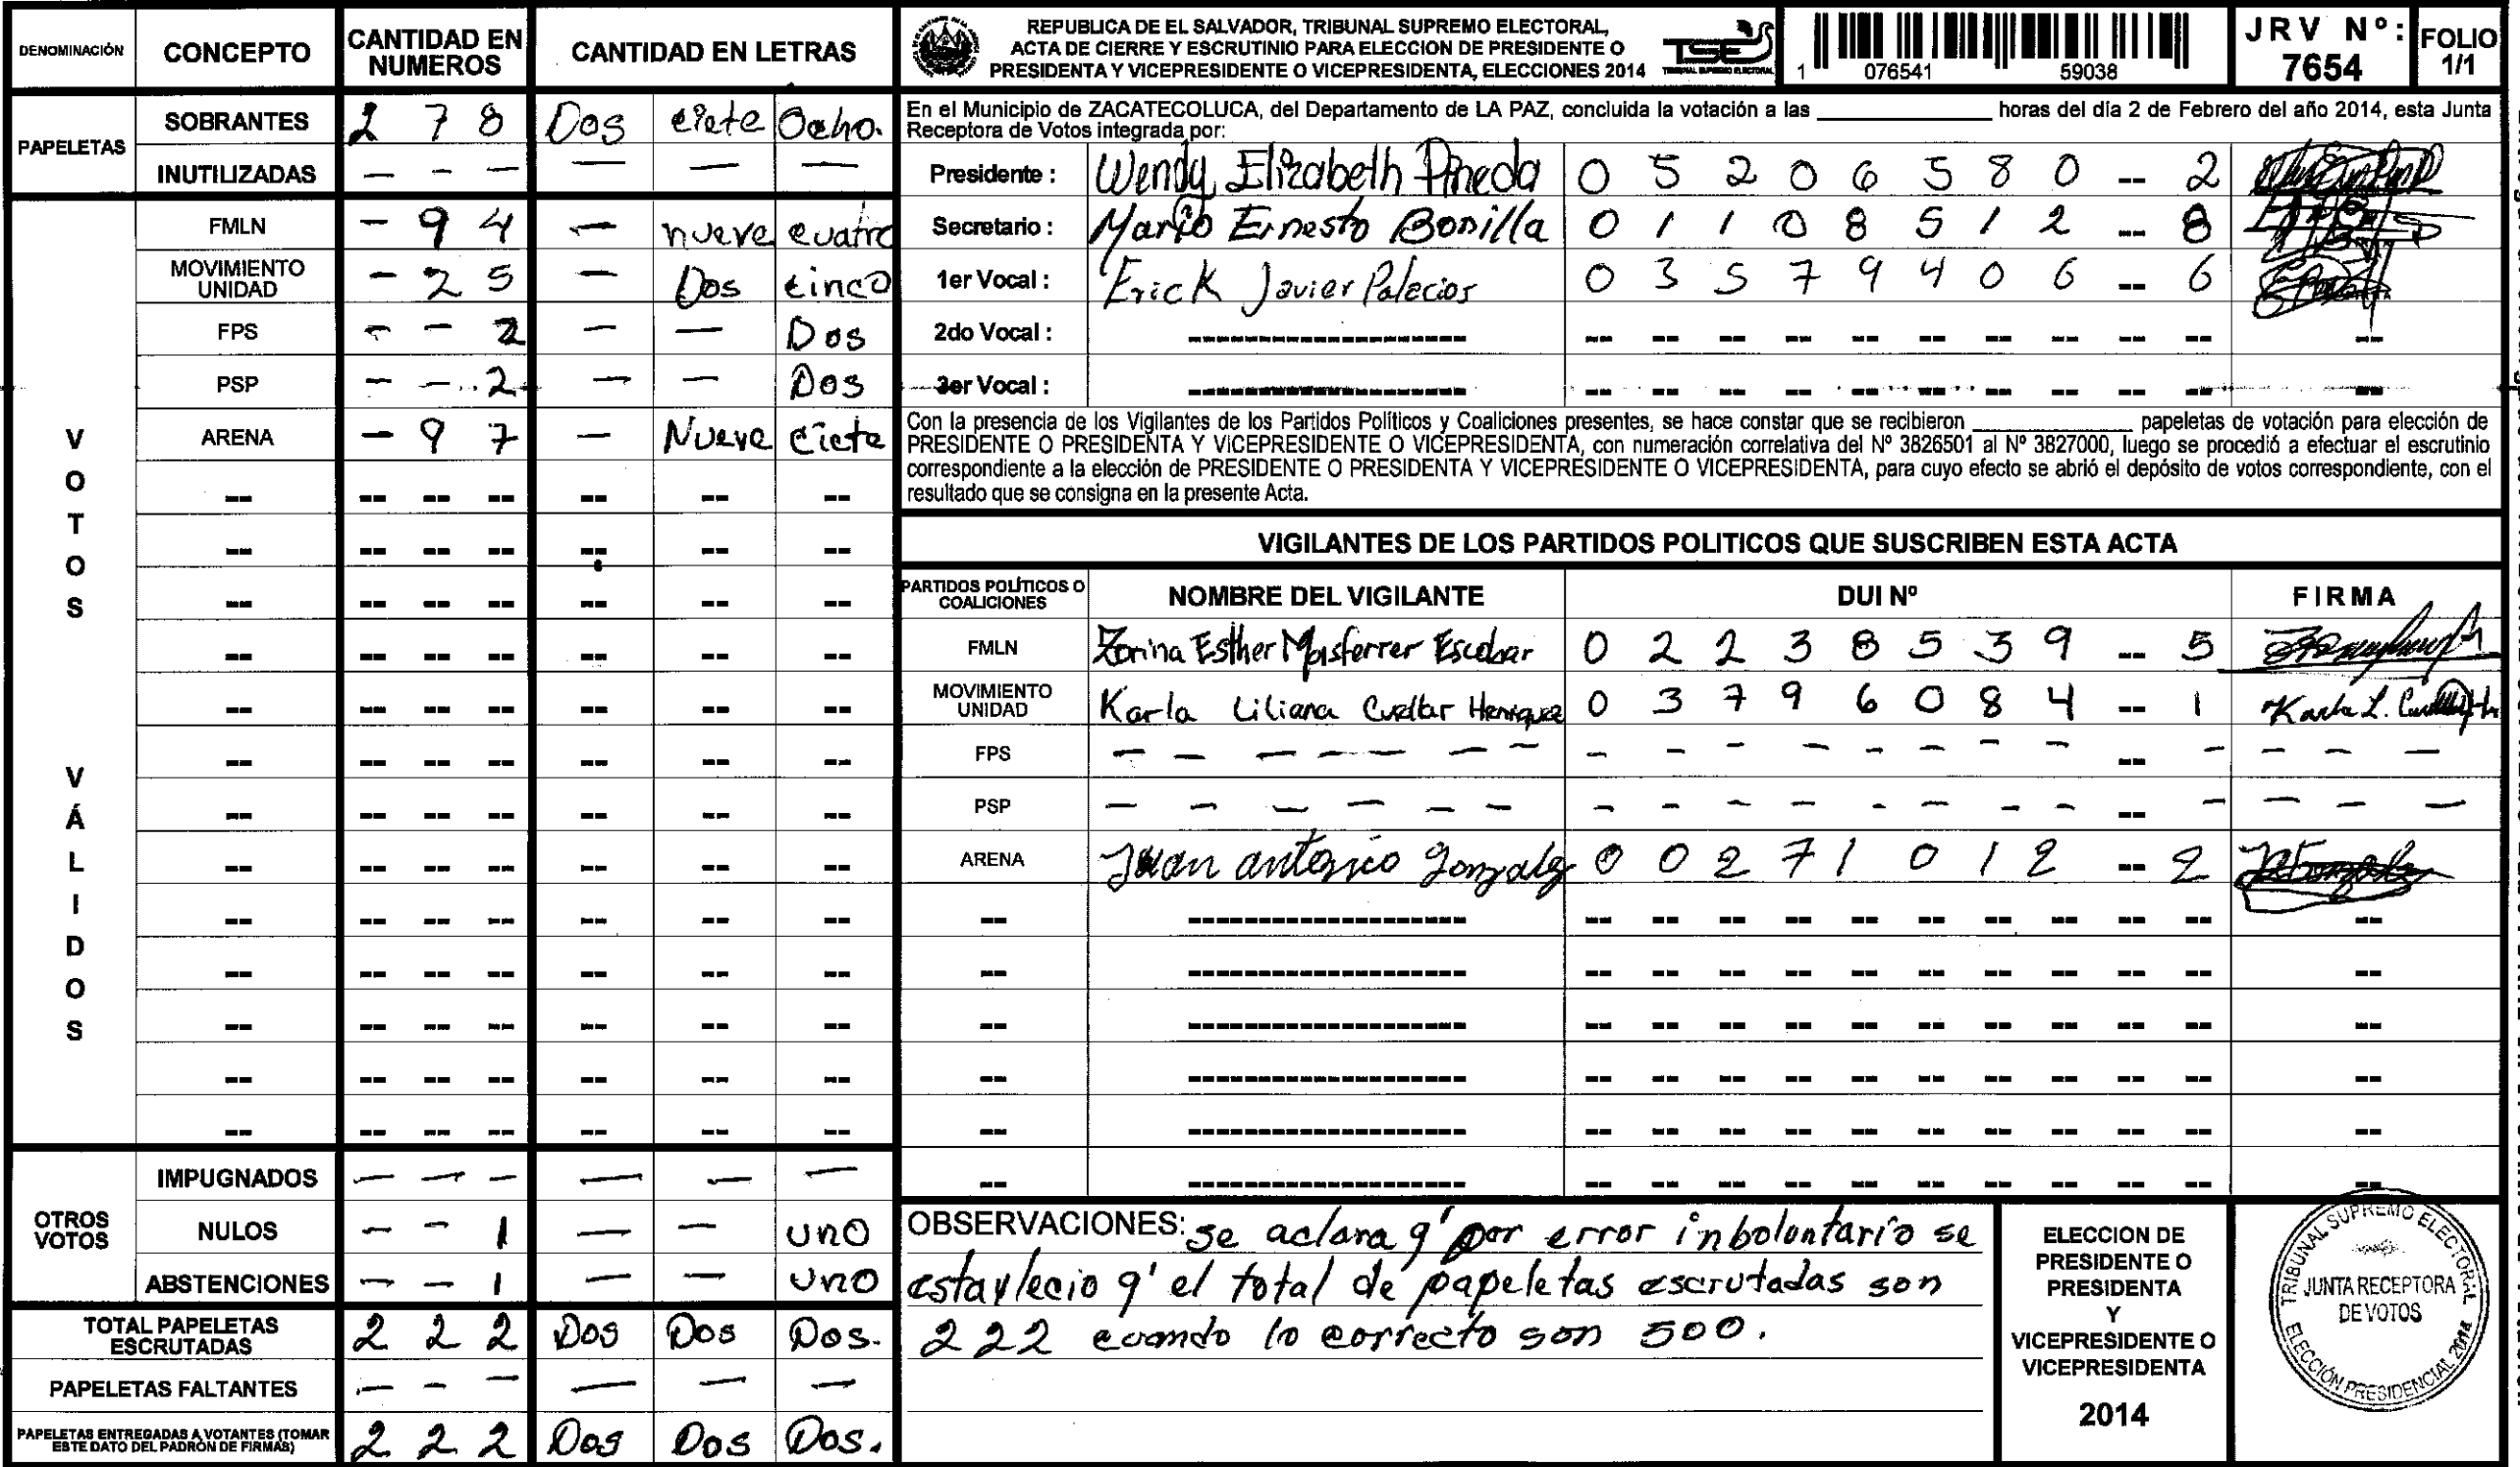 DENOMINACIÓN CONCEPTO CANTIDAD EN NUMEROS CANTIDAD EN LETRAS
PAPELETAS
SOBRANTES 2 7 8 Dos ciete Ocho.
INUTILIZADAS — — — — — —
VOTOS VÁLIDOS
FMLN - 9 4 — nueve cuatro
MOVIMIENTO UNIDAD - 2 5 — Dos cinco
FPS - - 2 — — Dos
PSP - - 2 — — Dos
ARENA - 9 7 — Nueve ciete
OTROS VOTOS
IMPUGNADOS — — — — — —
NULOS - - 1 — — uno
ABSTENCIONES - - 1 — — uno
TOTAL PAPELETAS ESCRUTADAS 2 2 2 Dos Dos Dos.
PAPELETAS FALTANTES — — — — — —
PAPELETAS ENTREGADAS A VOTANTES (TOMAR ESTE DATO DEL PADRÓN DE FIRMAS) 2 2 2 Dos Dos Dos.
REPUBLICA DE EL SALVADOR, TRIBUNAL SUPREMO ELECTORAL,
ACTA DE CIERRE Y ESCRUTINIO PARA ELECCION DE PRESIDENTE O
PRESIDENTA Y VICEPRESIDENTE O VICEPRESIDENTA, ELECCIONES 2014
TSE
TRIBUNAL SUPREMO ELECTORAL
1 076541 59038
JRV Nº: 7654
FOLIO 1/1
En el Municipio de ZACATECOLUCA, del Departamento de LA PAZ, concluida la votación a las ____ horas del día 2 de Febrero del año 2014, esta Junta
Receptora de Votos integrada por:
Presidente : Wendy Elizabeth Pineda 0 5 2 0 6 5 8 0 -- 2
Secretario : Mario Ernesto Bonilla 0 1 1 0 8 5 1 2 -- 8
1er Vocal : Erick Javier Palacios 0 3 5 7 9 4 0 6 -- 6
2do Vocal : --
3er Vocal : --
Con la presencia de los Vigilantes de los Partidos Políticos y Coaliciones presentes, se hace constar que se recibieron ____ papeletas de votación para elección de
PRESIDENTE O PRESIDENTA Y VICEPRESIDENTE O VICEPRESIDENTA, con numeración correlativa del Nº 3826501 al Nº 3827000, luego se procedió a efectuar el escrutinio
correspondiente a la elección de PRESIDENTE O PRESIDENTA Y VICEPRESIDENTE O VICEPRESIDENTA, para cuyo efecto se abrió el depósito de votos correspondiente, con el
resultado que se consigna en la presente Acta.
VIGILANTES DE LOS PARTIDOS POLITICOS QUE SUSCRIBEN ESTA ACTA
PARTIDOS POLÍTICOS O COALICIONES NOMBRE DEL VIGILANTE DUI Nº FIRMA
FMLN Zorina Esther Masferrer Escobar 0 2 2 3 8 5 3 9 -- 5
MOVIMIENTO UNIDAD Karla Liliana Cuellar Henriquez 0 3 7 9 6 0 8 4 -- 1 Karla L.
FPS - - - - - - -
PSP - - - - - - -
ARENA Juan antonio gonzalez 0 0 2 7 1 0 1 2 -- 2
OBSERVACIONES: se aclara q' por error inbolontario se
estaylecio q' el total de papeletas escrutadas son
222 cuando lo correcto son 500.
ELECCION DE
PRESIDENTE O
PRESIDENTA
Y
VICEPRESIDENTE O
VICEPRESIDENTA
2014
TRIBUNAL SUPREMO ELECTORAL
JUNTA RECEPTORA
DE VOTOS
ELECCIÓN PRESIDENCIAL 2014